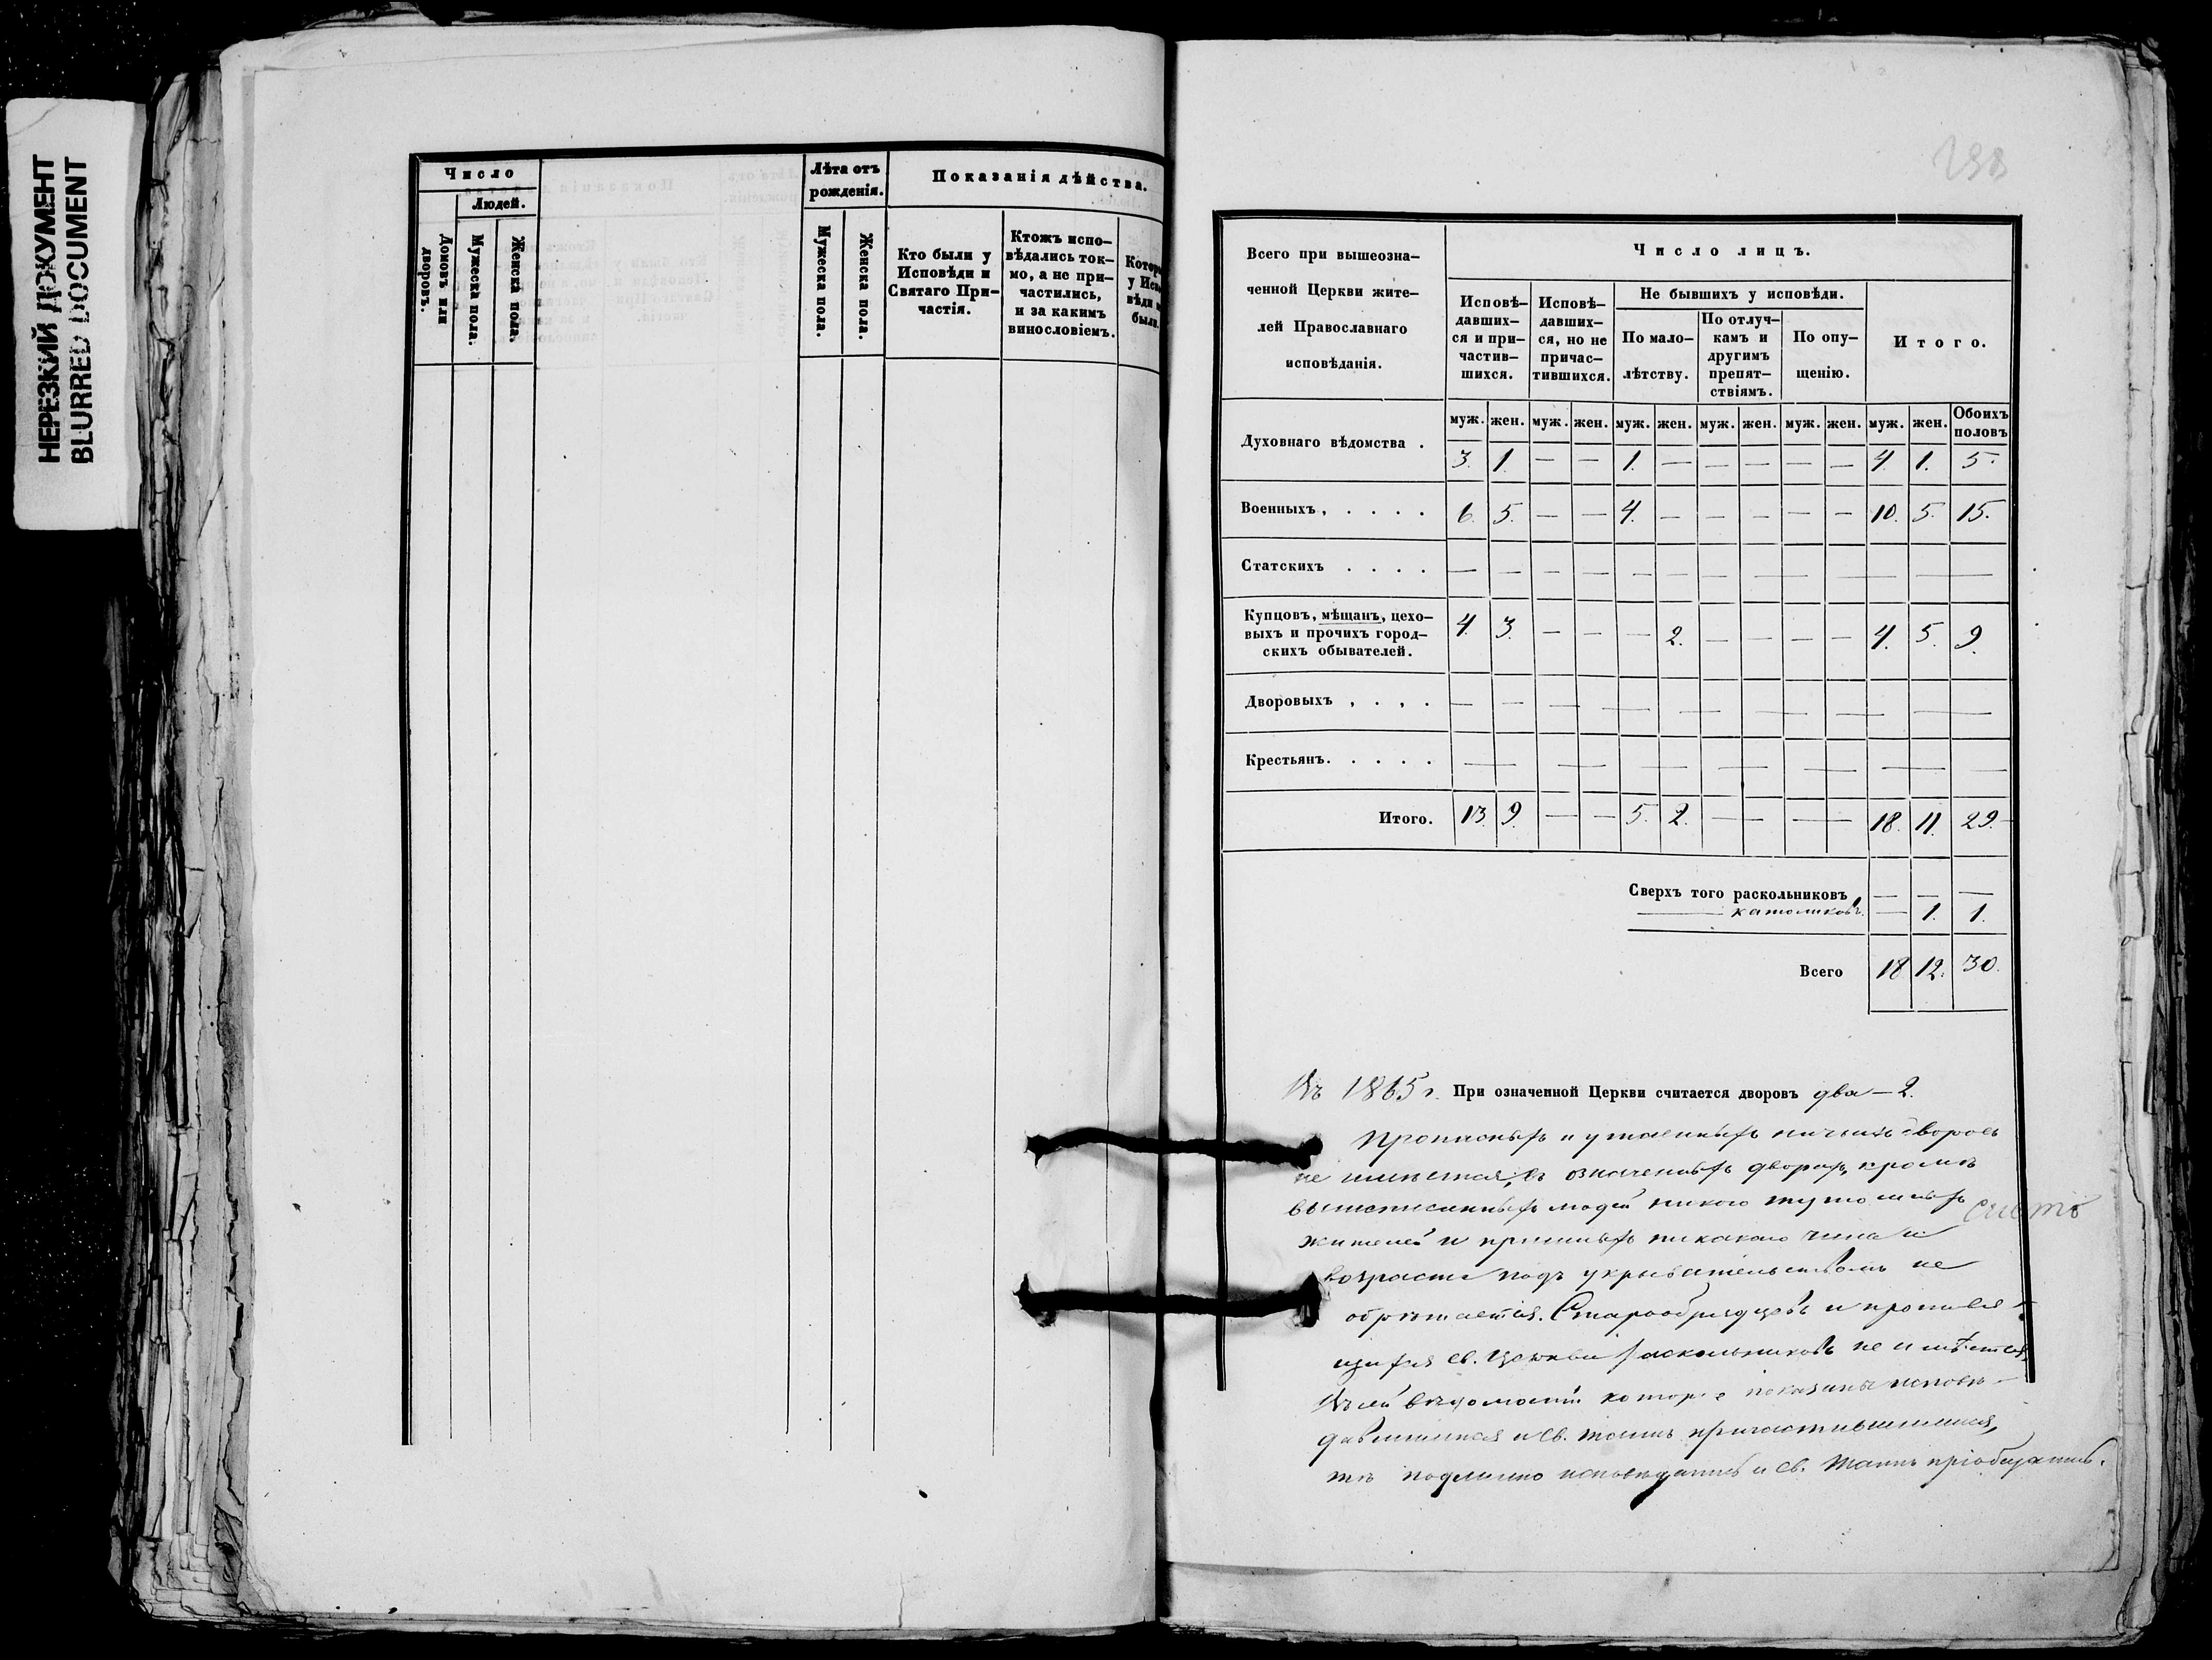 НЕРЕЗКИЙ ДОКУМЕНТ
BLURRED DOCUMENT
Число
Людей.
Домовъ или дворовъ.
Мужеска пола.
Женска пола.
Лѣта отъ рожденія.
Мужеска пола.
Женска пола.
Показанія дѣйства.
Кто были у
Исповѣди и
Святаго При-
частія.
Ктожъ испо-
вѣдались ток-
мо, а не при-
частились,
и за какимъ
винословіемъ.
Котор
у Испо
вѣди н
были.
Всего при вышеозна-
ченной Церкви жите-
лей Православнаго
исповѣданія.
Число лицъ.
Исповѣ-
давших-
ся и при-
частив-
шихся.
Исповѣ-
давших-
ся, но не
причас-
тившихся.
Не бывшихъ у исповѣди.
По мало-
лѣтству.
По отлуч-
камъ и
другимъ
препят-
ствіямъ.
По опу-
щенію.
Итого.
муж. жен. муж. жен. муж. жен. муж. жен. муж. жен. муж. жен. Обоихъ половъ
Духовнаго вѣдомства . 3. 1. — — 1. — — — — — 4. 1. 5.
Военныхъ, . . . . 6. 5. — — 4. — — — — — 10. 5. 15.
Статскихъ . . . . — — — — — — — — — — —
Купцовъ, мѣщанъ, цехо-
выхъ и прочихъ город-
скихъ обывателей. 4. 3. — — — 2. — — — — 4. 5. 9.
Дворовыхъ , . , . — — — — — — — —
Крестьянъ. . . . . — — — — — — —
Итого. 13. 9. — — 5. 2. — — — — 18. 11. 29.
Сверхъ того раскольниковъ — — —
— католиковъ. — 1. 1.
Всего 18 12. 30.
Въ 1865 г. При означенной Церкви считается дворовъ два — 2.
Прописныхъ и утаенныхъ ничьихъ дворовъ
не имѣется, въ означенныхъ дворахъ, кромѣ
вышеписанныхъ людей никого
жителей и пришлыхъ никакого чина и
возраста подъ укрывательствомъ не
обрѣтается. Старообрядцевъ и
св. Церкви раскольниковъ не имѣется,
Въ сей вѣдомости которые показаны исповѣ-
давшимися и св. таинъ причастившимися,
тѣ подлинно исповѣдались и св. Таинъ пріобщались.